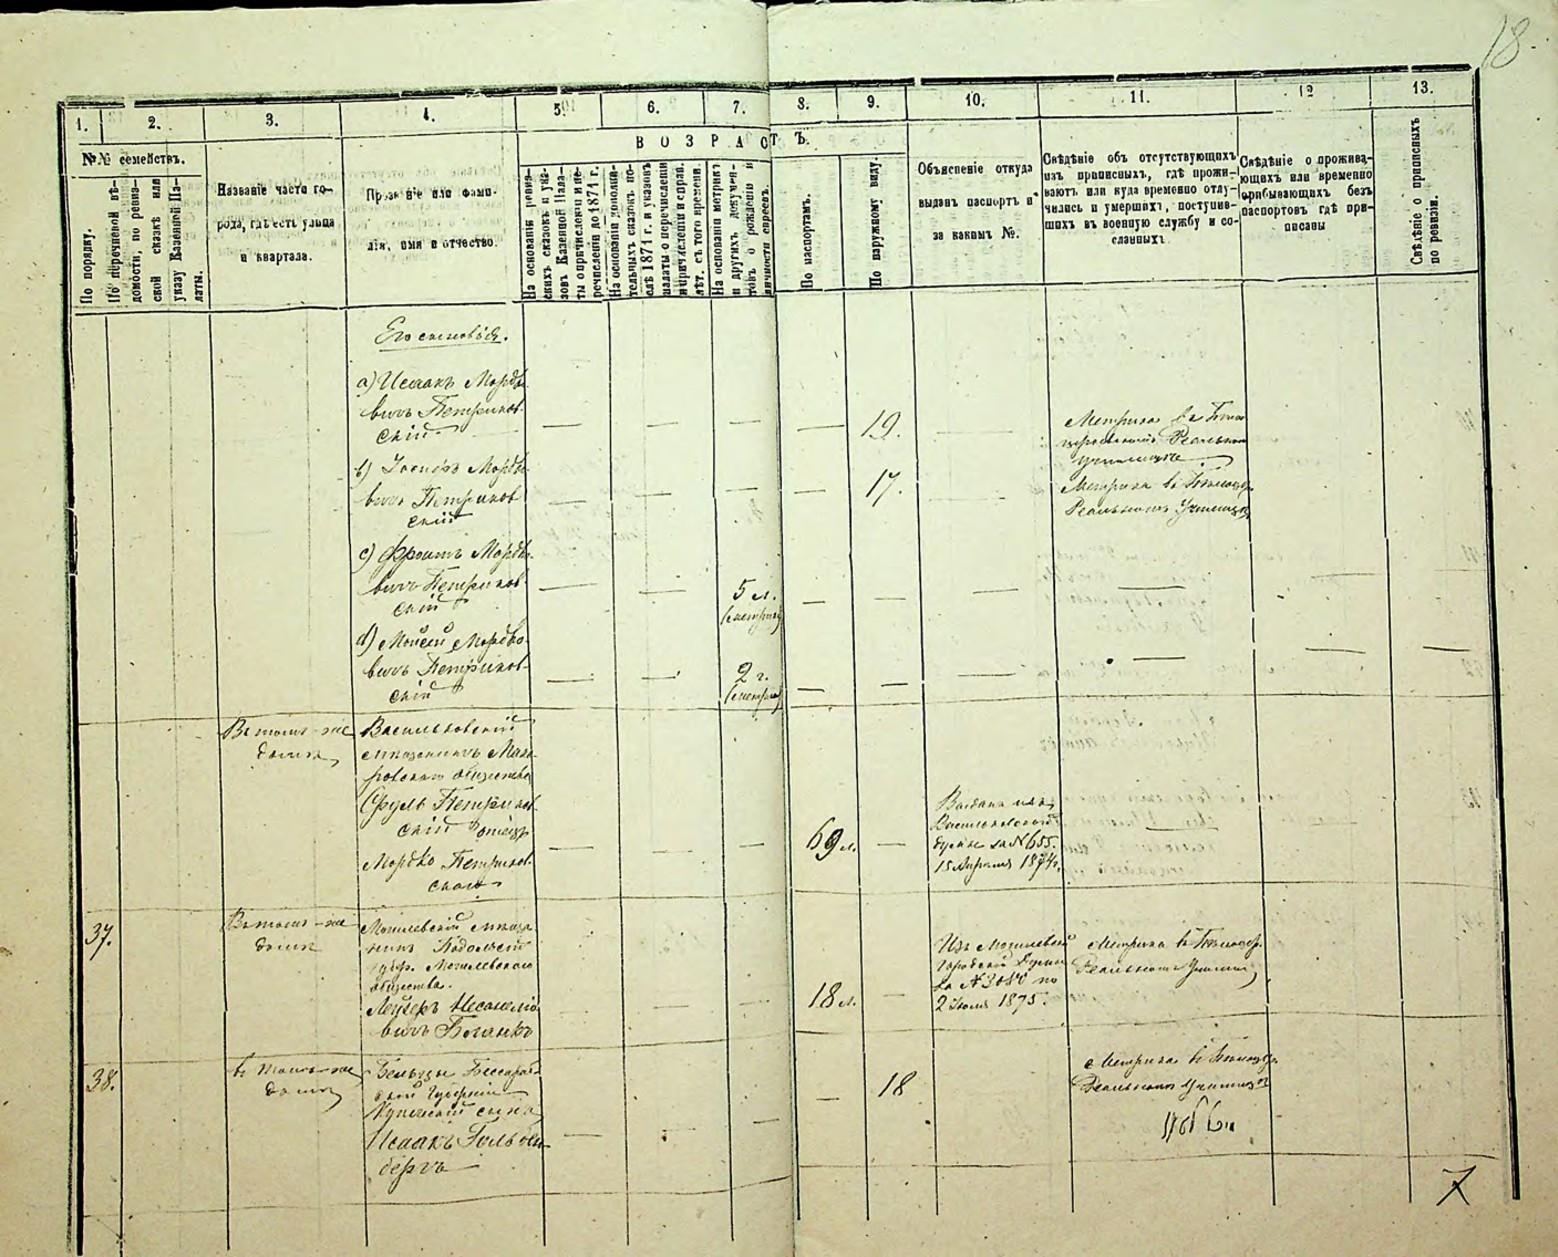 18.
1. 2. 3. 4. 5. 6. 7. 8. 9. 10. 11. 12 13.
№№ семействъ.
ВОЗРАСТЪ.
По порядку.
По перечневой вѣ-
домости, по ревиз-
ской сказкѣ или
указу Казенной Па-
латы.
Названіе части го-
рода, гдѣ есть улица
и квартала.
Прозваніе или фами-
лія, имя и отчество.
На основаніи ревиз-
скихъ сказокъ и ука-
зовъ Казенной Пала-
ты о причисленіи и пе-
речисленіи до 1871 г.
На основаніи дополни-
тельныхъ сказокъ по-
слѣ 1871 г. и указовъ
палаты о перечисленіи
и причисленіи и прав.
лѣт. съ того времени.
На основаніи метрикъ
и другихъ докумен-
товъ о рожденіи и
личности евреевъ.
По паспортамъ.
По наружному виду.
Объясненіе откуда
выданъ паспортъ и
за какимъ №.
Свѣдѣніе объ отсутствующихъ
изъ приписныхъ, гдѣ прожи-
ваютъ или куда временно отлу-
чились и умершихъ, поступив-
шихъ въ военную службу и со-
сланныхъ.
Свѣдѣніе о прожива-
ющихъ или временно
прибывающихъ безъ
паспортовъ гдѣ при-
писаны
Свѣдѣніе о приписныхъ
по ревизіи.
Его сыновья.
а) Исаакъ Мордко-
вичъ Петриков-
скій
19.
Метрика въ Бѣло-
церковскомъ Реальном
училищѣ
b) Іосифъ Мордко-
вичъ Петриков
скій
17.
Метрика въ Бѣлоцер.
Реальномъ Училищѣ
c) Фроимъ Мордко-
вичъ Петриков
скій
5 л.
(метрика)
d) Мойсей Мордко-
вичъ Петриков
скій
2 г.
(метрика)
Въ томъ-же
домѣ
Васильковскій
мѣщанинъ Мака-
ровскаго общества
Сруль Петриков
скій отецъ
Мордко Петриков-
скаго
69 л.
Выданъ изъ
Васильковской
думы за № 655.
15 Апрѣля 1874 г.
37.
Въ томъ-же
домѣ
Могилевскій мѣща
нинъ Подольск
губер. Могилевского
общества.
Лейзеръ
18 л.
Изъ Могилевской
Городской Думы
за № 3080 по
2 Іюля 1875.
Метрика въ Бѣлоцер.
Реальномъ Училищ
38.
въ томъ-же
домѣ
Бельцы Бессараб-
ской Губерніи
Купеческій сынъ
Исаакъ Гольден-
бергъ
18
Метрика въ Бѣлоцер.
Реальномъ Училищѣ
7